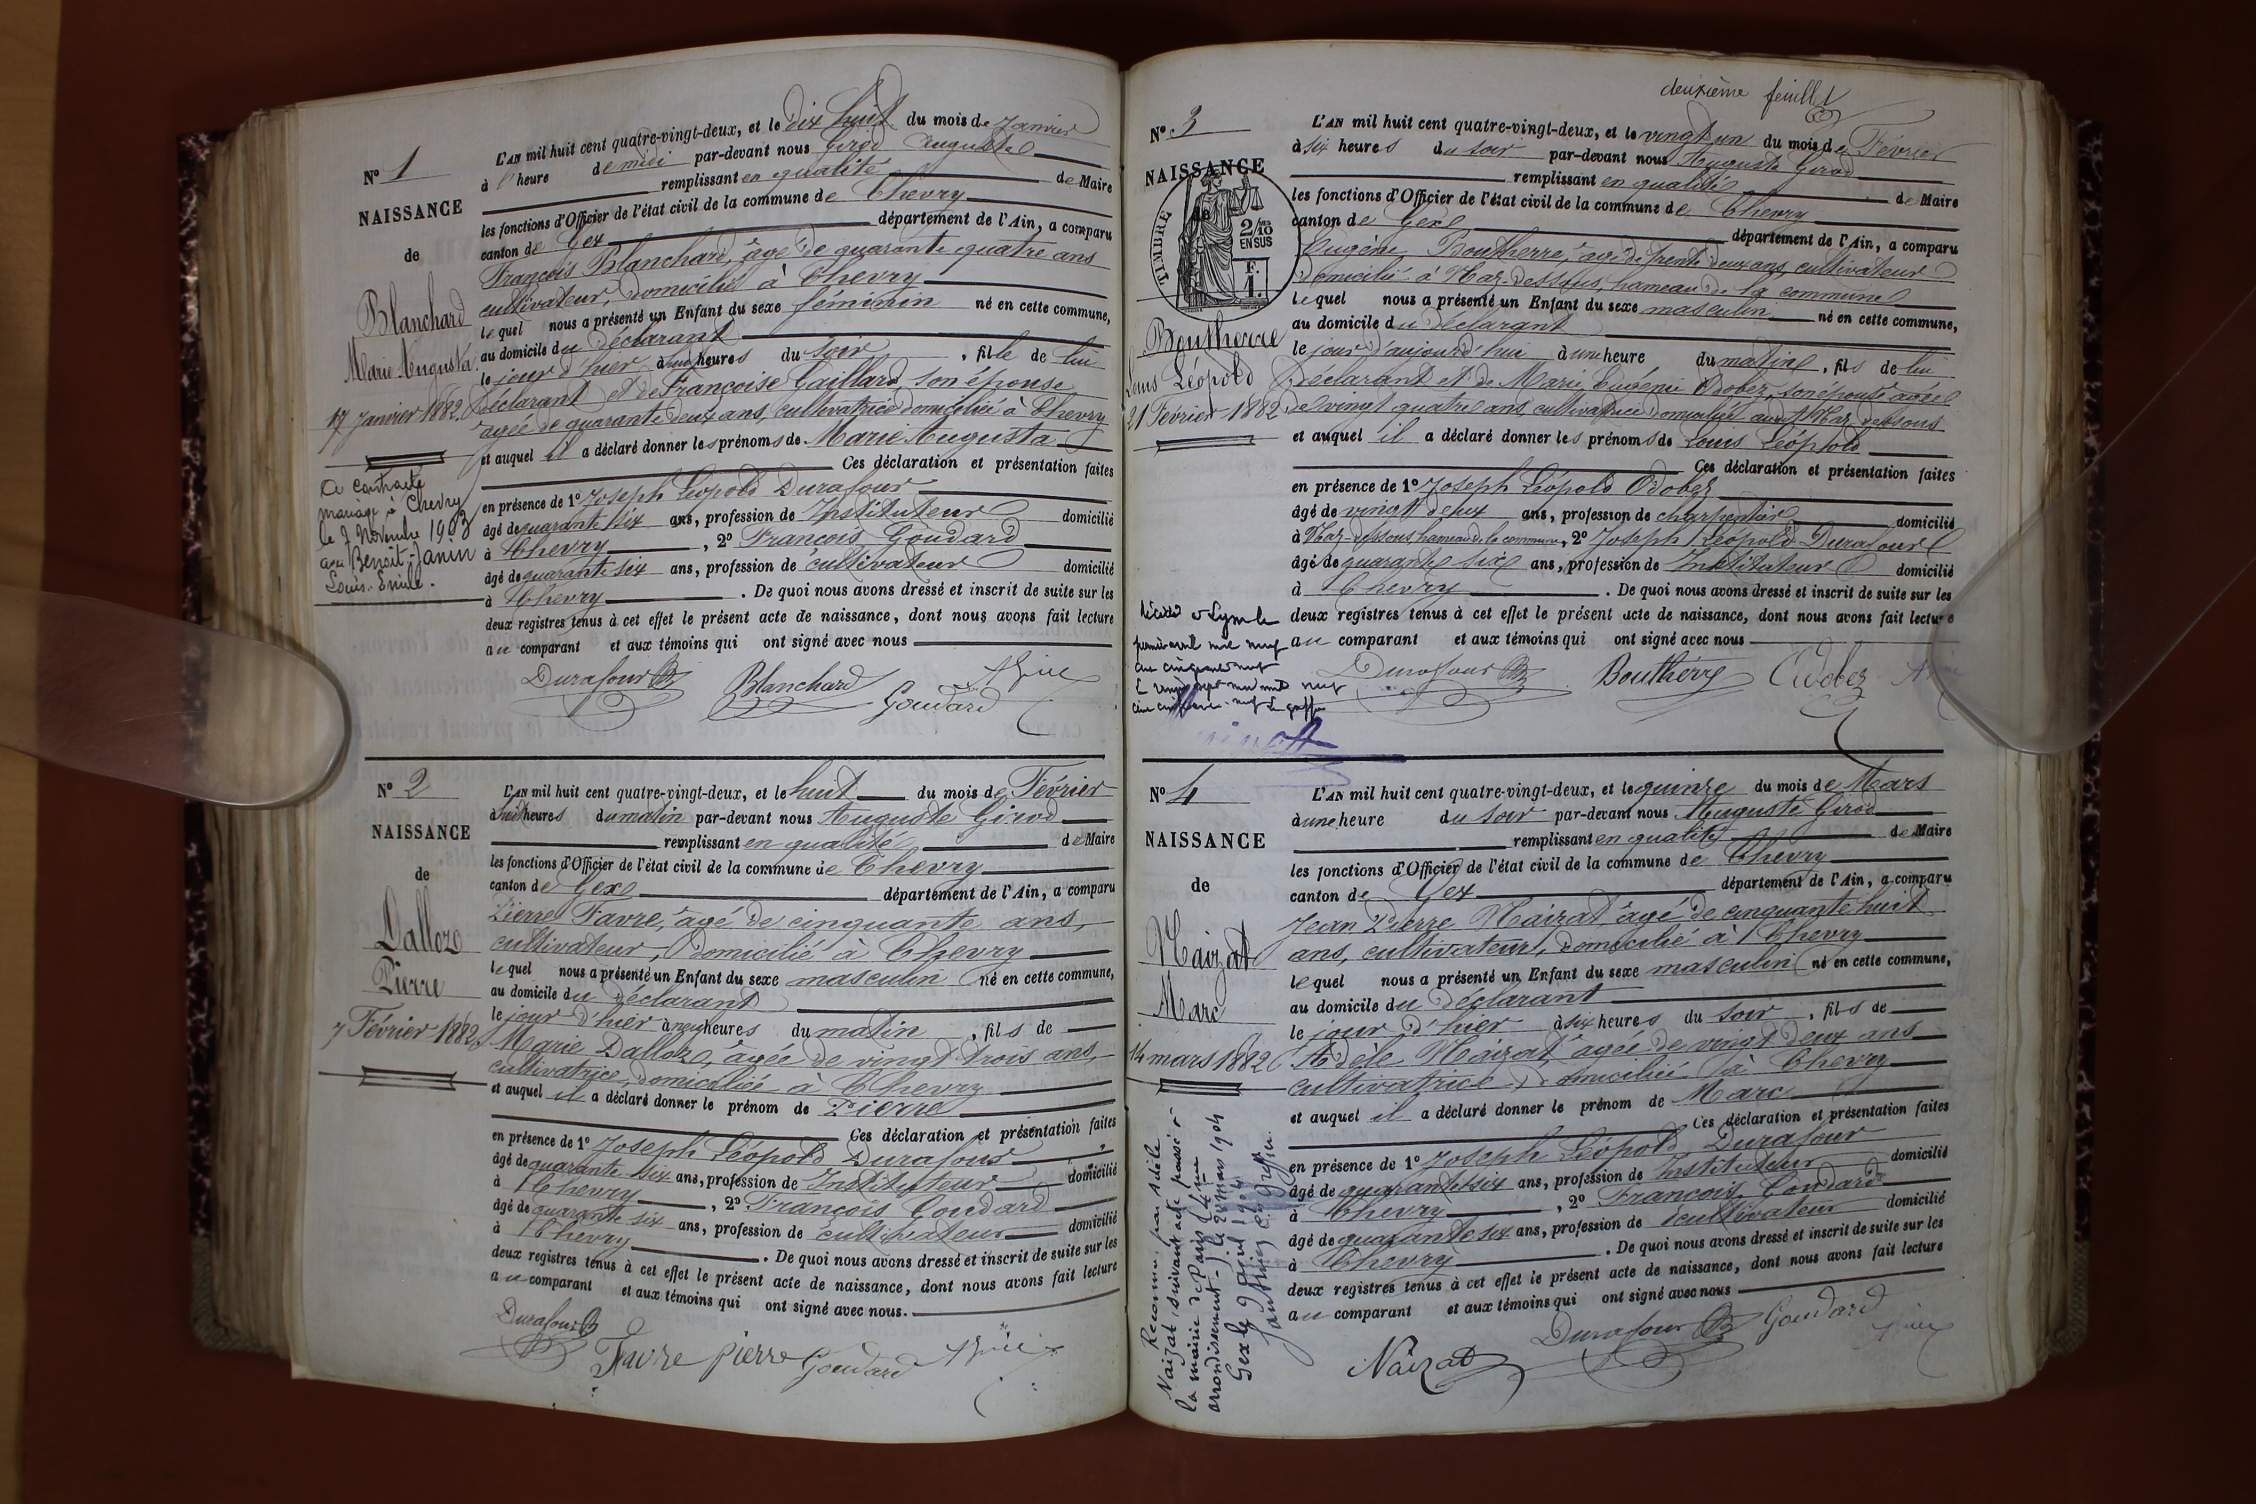 N° 1
NAISSANCE
de
Blanchard
Marie Augusta
17 Janvier 1882
a contracté
mariage à Chevry
le 7 Novembre 1903
avec Benoit-Janin
Louis-Emile.
L'AN mil huit cent quatre-vingt-deux, et le dix huit du mois de Janvier
à l'heure de midi par-devant nous Girod Auguste
remplissant en qualité de Maire
les fonctions d'Officier de l'état civil de la commune de Chevry
canton de Gex département de l'Ain, a comparu
François Blanchard, âgé de quarante quatre ans
cultivateur, domicilié à Chevry
lequel nous a présenté un Enfant du sexe féminin né en cette commune,
au domicile du déclarant
le jour d'hier à heures du soir, fille de lui
déclarant et de Françoise Gaillard, son épouse
âgée de quarante deux ans, cultivatrice domiciliée à Chevry
et auquel il a déclaré donner les prénoms de Marie Augusta
Ces déclaration et présentation faites
en présence de 1° Joseph Léopold Durafour
âgé de quarante six ans, profession de Instituteur domicilié
à Chevry, 2° François Goudard
âgé de quarante six ans, profession de cultivateur domicilié
à Chevry. De quoi nous avons dressé et inscrit de suite sur les
deux registres tenus à cet effet le présent acte de naissance, dont nous avons fait lecture
au comparant et aux témoins qui ont signé avec nous
Durafour Blanchard Goudard
N° 2
NAISSANCE
de
Dalloz
Pierre
7 Février 1882
L'AN mil huit cent quatre-vingt-deux, et le huit du mois de Février
à huit heures du matin par-devant nous Auguste Girod
remplissant en qualité de Maire
les fonctions d'Officier de l'état civil de la commune de Chevry
canton de Gex département de l'Ain, a comparu
Pierre Favre, âgé de cinquante ans,
cultivateur, domicilié à Chevry
lequel nous a présenté un Enfant du sexe masculin né en cette commune,
au domicile du déclarant
le jour d'hier à neuf heures du matin, fils de
Marie Dalloz, âgée de vingt trois ans,
cultivatrice, domiciliée à Chevry
et auquel il a déclaré donner le prénom de Pierre
Ces déclaration et présentation faites
en présence de 1° Joseph Léopold Durafour
âgé de quarante six ans, profession de Instituteur domicilié
à Chevry, 2° François Goudard
âgé de quarante six ans, profession de cultivateur domicilié
à Chevry. De quoi nous avons dressé et inscrit de suite sur les
deux registres tenus à cet effet le présent acte de naissance, dont nous avons fait lecture
au comparant et aux témoins qui ont signé avec nous.
Durafour
Favre pierre Goudard
deuxième feuillet
N° 3
NAISSANCE
de
TIMBRE
2/10
EN SUS
F.
1.
Boutherre
Louis Léopold
21 Février 1882
L'AN mil huit cent quatre-vingt-deux, et le vingt un du mois de Février
à six heures du soir par-devant nous Auguste Girod
remplissant en qualité de Maire
les fonctions d'Officier de l'état civil de la commune de Chevry
canton de Gex département de l'Ain, a comparu
Eugène Boutherre, âgé de trente deux ans, cultivateur
domicilié à Naz-dessous, hameau de la commune
lequel nous a présenté un Enfant du sexe masculin né en cette commune,
au domicile du déclarant
le jour d'aujourd'hui à une heure du matin, fils de lui
déclarant et de Marie Eugénie Odobez, son épouse âgée
de vingt quatre ans, cultivatrice domiciliée audit Naz-dessous
et auquel il a déclaré donner les prénoms de Louis Léopold
Ces déclaration et présentation faites
en présence de 1° Joseph Léopold Odobez
âgé de vingt deux ans, profession de charpentier domicilié
à Naz-dessous, hameau de la commune, 2° Joseph Léopold Durafour
âgé de quarante six ans, profession de Instituteur domicilié
à Chevry. De quoi nous avons dressé et inscrit de suite sur les
deux registres tenus à cet effet le présent acte de naissance, dont nous avons fait lecture
au comparant et aux témoins qui ont signé avec nous
Décédé à Lyon le
premier avril mil neuf
cent cinquante neuf
Durafour Boutherre Odobez
N° 4
NAISSANCE
de
Naizat
Marc
14 mars 1882
L'AN mil huit cent quatre-vingt-deux, et le quinze du mois de Mars
à une heure du soir par-devant nous Auguste Girod
remplissant en qualité de Maire
les fonctions d'Officier de l'état civil de la commune de Chevry
canton de Gex département de l'Ain, a comparu
Jean Pierre Naizat âgé de cinquante huit
ans, cultivateur, domicilié à Chevry
lequel nous a présenté un Enfant du sexe masculin né en cette commune,
au domicile du déclarant
le jour d'hier à six heures du soir, fils de
Adèle Naizat âgée de vingt deux ans
cultivatrice, domiciliée à Chevry
et auquel il a déclaré donner le prénom de Marc
Ces déclaration et présentation faites
en présence de 1° Joseph Léopold Durafour
âgé de quarante six ans, profession de Instituteur domicilié
à Chevry, 2° François Goudard
âgé de quarante six ans, profession de cultivateur domicilié
à Chevry. De quoi nous avons dressé et inscrit de suite sur les
deux registres tenus à cet effet le présent acte de naissance, dont nous avons fait lecture
au comparant et aux témoins qui ont signé avec nous
Durafour Goudard
Naizat
Reconnu par Adèle
Naizat suivant acte passé à
la mairie de Paris
arrondissement le 24 mars 1904
Gex le 9 avril 1904